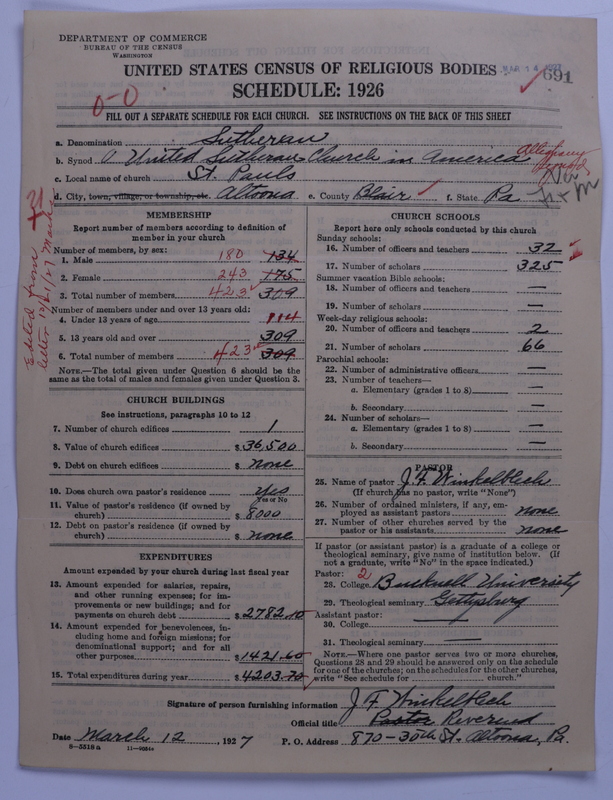 DEPARTMENT OF COMMERCE
BUREAU OF THE CENSUS
WASHINGTON
UNITED STATES CENSUS OF RELIGIOUS BODIES
MAR 14 1927
691
SCHEDULE: 1926
0-0
FILL OUT A SEPARATE SCHEDULE FOR EACH CHURCH. SEE INSTRUCTIONS ON THE BACK OF THIS SHEET
a. Denomination Lutheran
b. Synod United Lutheran Church in America Allegheny Synod
c. Local name of church St. Pauls
d. City, town, village, or township, etc. Altoona e. County Blair f. State Pa
Edited from letter 12/21/27
MEMBERSHIP
Report number of members according to definition of
member in your church
Number of members, by sex:
1. Male 180 134
2. Female 243 175
3. Total number of members 423 309
Number of members under and over 13 years old:
4. Under 13 years of age 114
5. 13 years old and over 309
6. Total number of members 423 309
NOTE.—The total given under Question 6 should be the
same as the total of males and females given under Question 3.
CHURCH BUILDINGS
See instructions, paragraphs 10 to 12
7. Number of church edifices 1
8. Value of church edifices $36,500
9. Debt on church edifices $ none
10. Does church own pastor's residence Yes
Yes or No
11. Value of pastor's residence (if owned by
church) $ 8000
12. Debt on pastor's residence (if owned by
church) $ none
EXPENDITURES
Amount expended by your church during last fiscal year
13. Amount expended for salaries, repairs,
and other running expenses; for im-
provements or new buildings; and for
payments on church debt $2782.10
14. Amount expended for benevolences, in-
cluding home and foreign missions; for
denominational support; and for all
other purposes $1421.60
15. Total expenditures during year $4203.70
CHURCH SCHOOLS
Report here only schools conducted by this church
Sunday schools:
16. Number of officers and teachers 32
17. Number of scholars 325
Summer vacation Bible schools:
18. Number of officers and teachers —
19. Number of scholars —
Week-day religious schools:
20. Number of officers and teachers 2
21. Number of scholars 66
Parochial schools:
22. Number of administrative officers —
23. Number of teachers—
a. Elementary (grades 1 to 8) —
b. Secondary —
24. Number of scholars—
a. Elementary (grades 1 to 8) —
b. Secondary —
PASTOR
25. Name of pastor J. F. Winkelblech
(If church has no pastor, write "None")
26. Number of ordained ministers, if any, em-
ployed as assistant pastors none
27. Number of other churches served by the
pastor or his assistants none
If pastor (or assistant pastor) is a graduate of a college or
theological seminary, give name of institution below. (If
not a graduate, write "No" in the space indicated.)
Pastor: 2
28. College Bucknell University
29. Theological seminary Gettysburg
Assistant pastor:
30. College —
31. Theological seminary —
NOTE.—Where one pastor serves two or more churches,
Questions 28 and 29 should be answered only on the schedule
for one of the churches; on the schedules for the other churches,
write "See schedule for church."
Signature of person furnishing information J. F. Winkelblech
Official title Pastor Reverend
Date March 12, 1927 P. O. Address 870-30th St. Altoona, Pa.
8-5518a 11-9084a